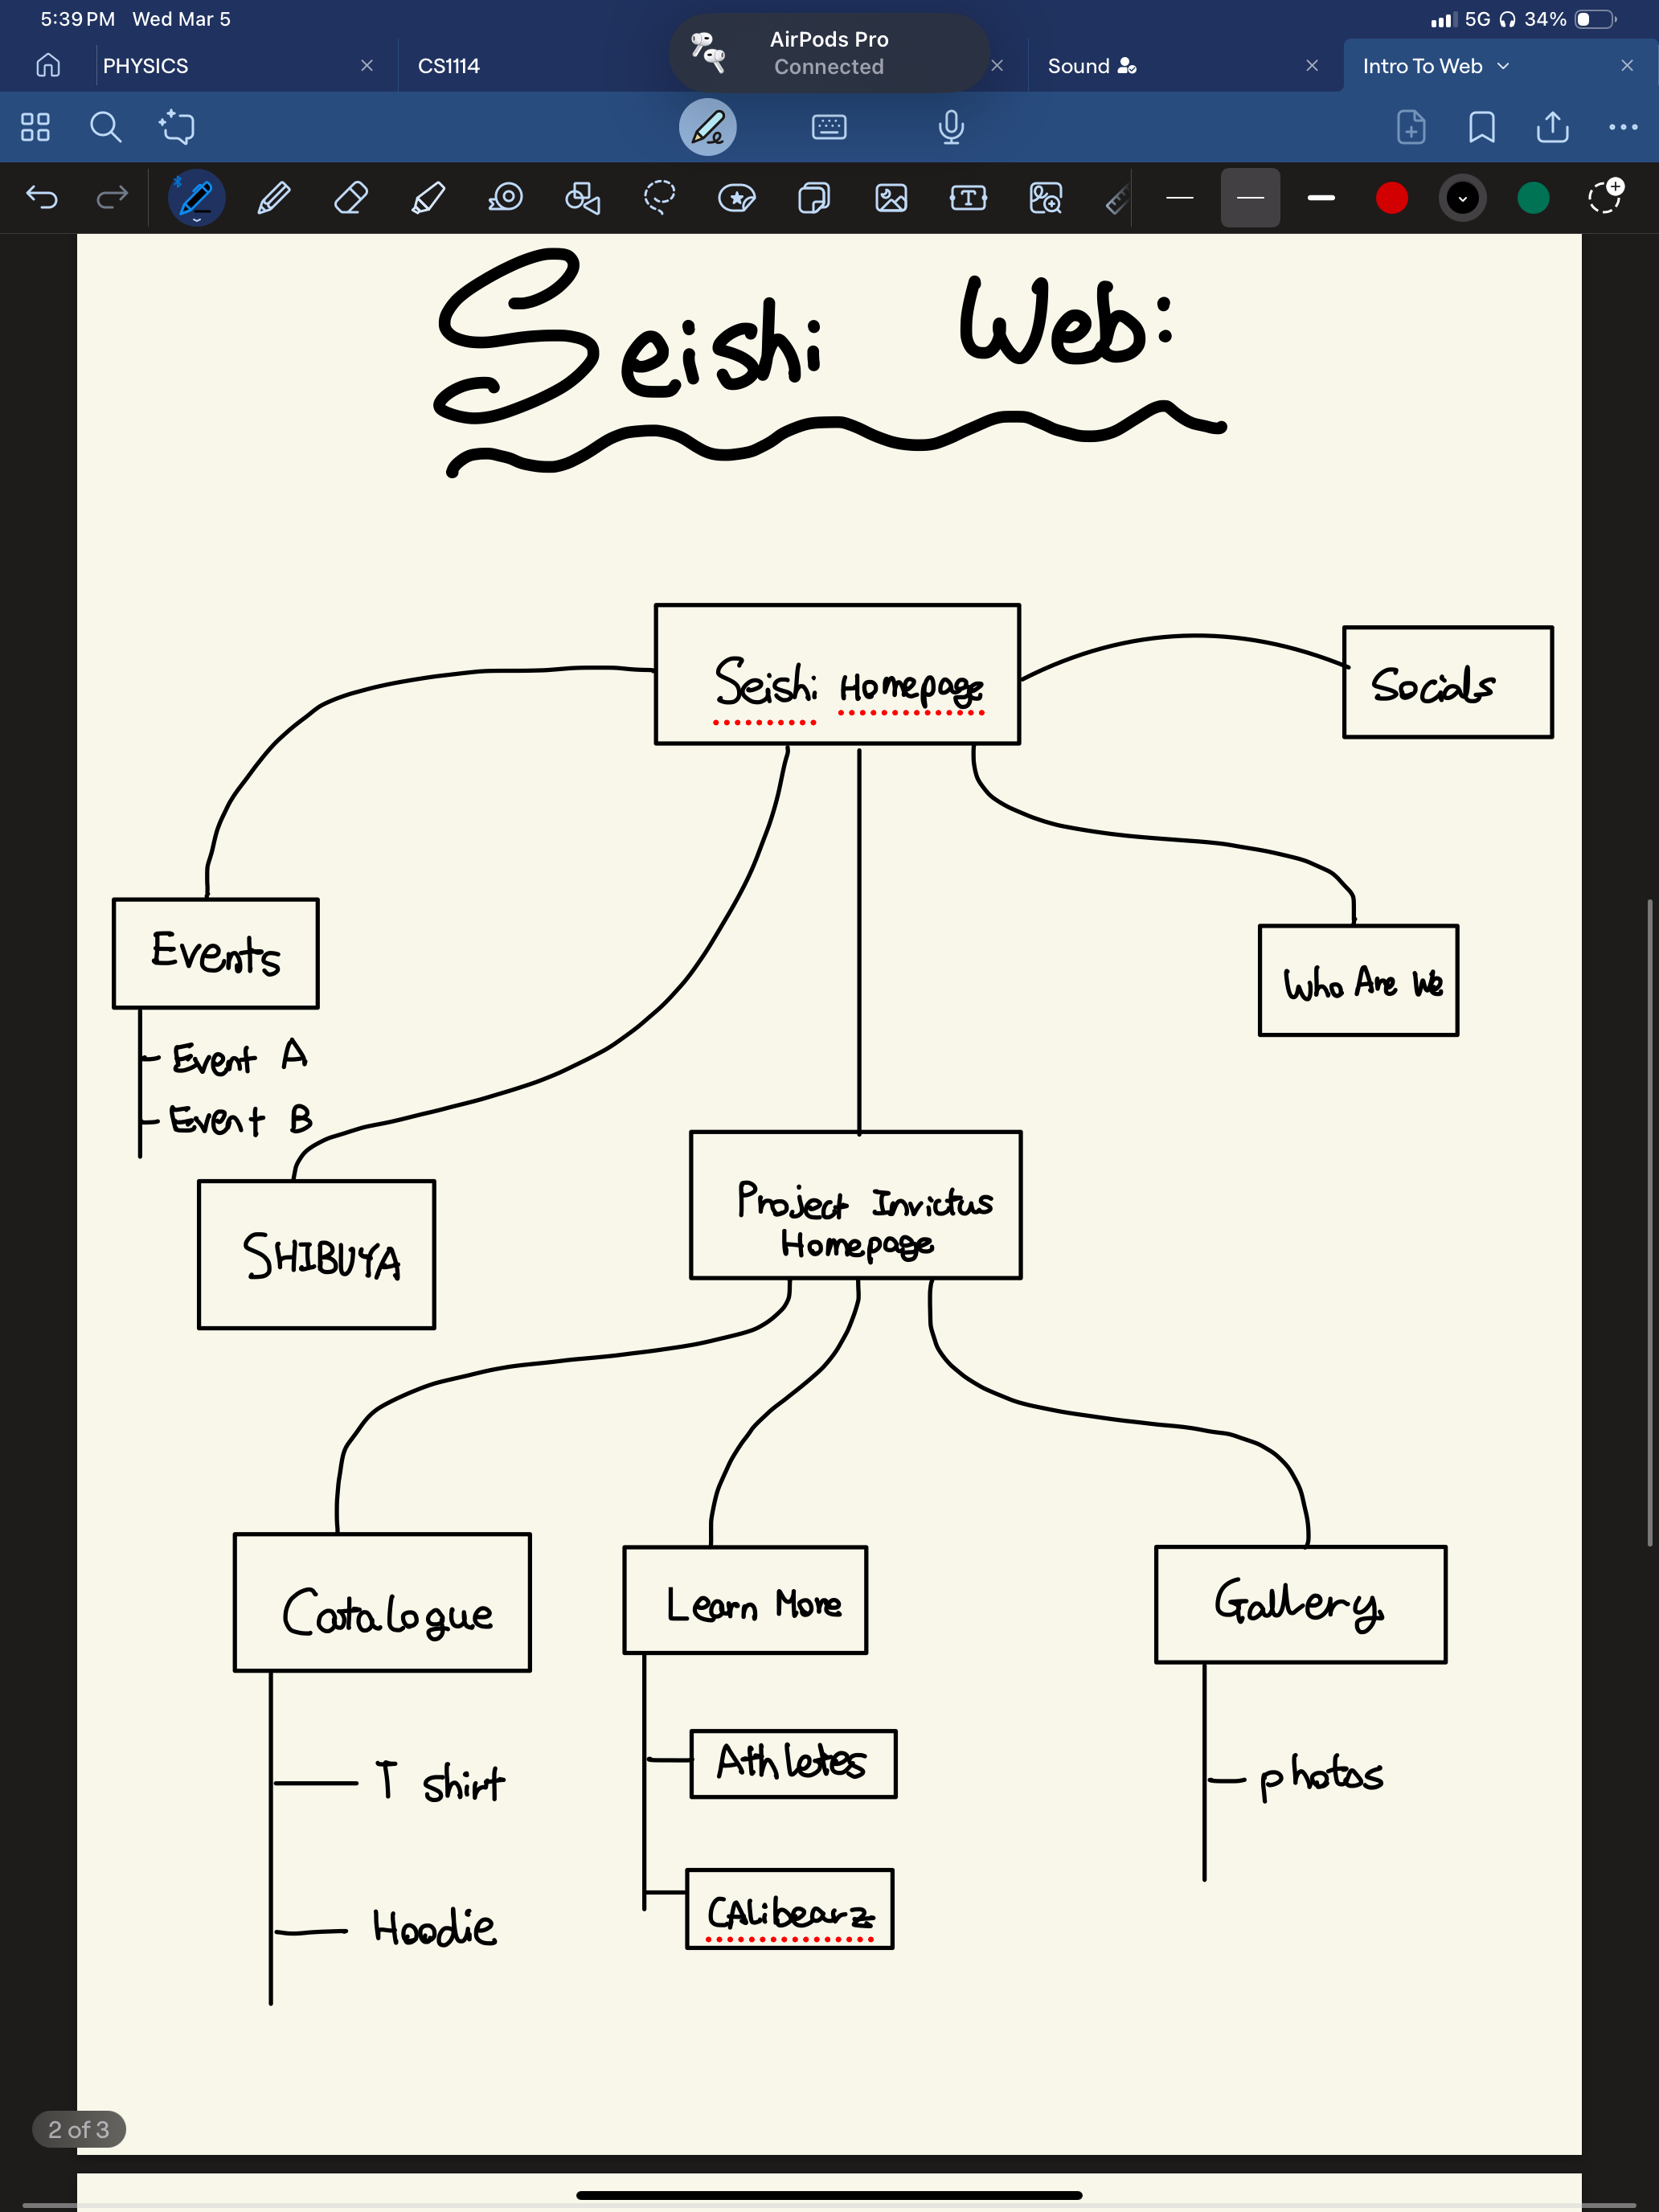 5:39 PM Wed Mar 5
5G 34%
AirPods Pro
Connected
PHYSICS
CS1114
Sound
Intro To Web
Seishi Web:
Seishi Homepage
Socials
Events
Who Are We
Event A
Event B
SHIBUYA
Project Invictus
Homepage
Catalogue
Learn More
Gallery
T shirt
Athletes
photos
Hoodie
CALibearz
2 of 3